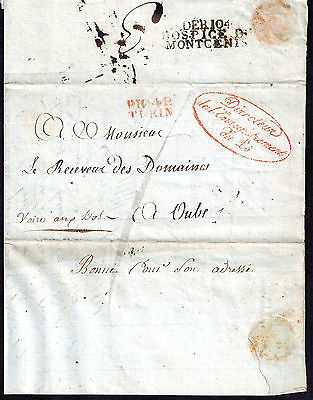 DEB.104
HOSPICE D
MONTCENIS
P.104.P.
TURIN
Directeur
du Po
A Monsieur
Le Receveur des Domaines
Voire au Dos A Oulx
Bonne Pour Son adresse